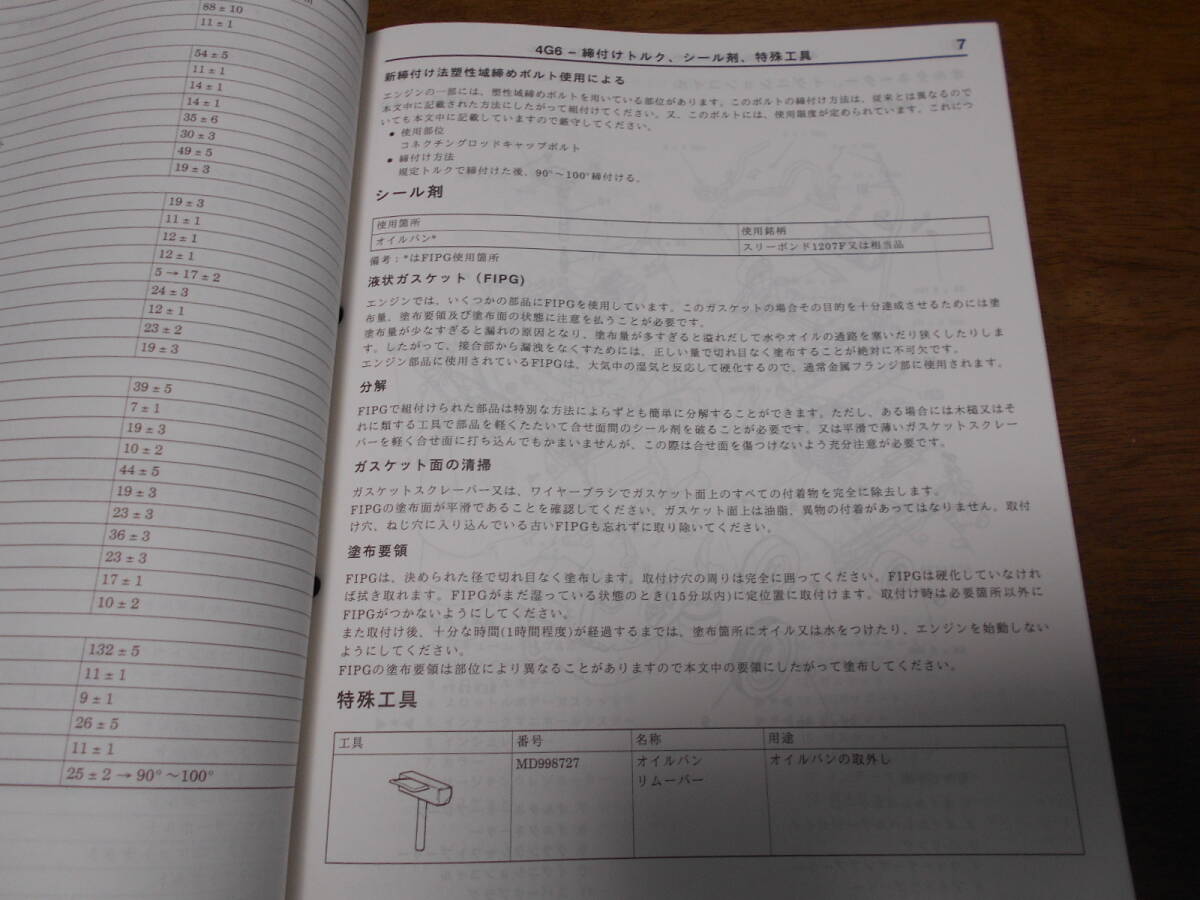 88 ± 10
11 ± 1
54 ± 5
11 ± 1
14 ± 1
14 ± 1
35 ± 6
30 ± 3
49 ± 5
19 ± 3
19 ± 3
11 ± 1
12 ± 1
12 ± 1
5 → 17 ± 2
24 ± 3
12 ± 1
23 ± 2
19 ± 3
39 ± 5
7 ± 1
19 ± 3
10 ± 2
44 ± 5
19 ± 3
23 ± 3
36 ± 3
23 ± 3
17 ± 1
10 ± 2
132 ± 5
11 ± 1
9 ± 1
26 ± 5
11 ± 1
25 ± 2 → 90° ~ 100°
4G6 – 締付けトルク、シール剤、特殊工具 7
新締付け法塑性域締めボルト使用による
エンジンの一部には、塑性域締めボルトを用いている部位があります。このボルトの締付け方法は、従来とは異なるので
本文中に記載された方法にしたがって組付けてください。又、このボルトには、使用限度が定められています。これにつ
いても本文中に記載していますので厳守してください。
● 使用部位
コネクチングロッドキャップボルト
● 締付け方法
規定トルクで締付けた後、90°~100°締付ける。
シール剤
使用箇所 使用銘柄
オイルパン* スリーボンド1207F又は相当品
備考：*はFIPG使用箇所
液状ガスケット（FIPG）
エンジンでは、いくつかの部品にFIPGを使用しています。このガスケットの場合その目的を十分達成させるためには塗
布量、塗布要領及び塗布面の状態に注意を払うことが必要です。
塗布量が少なすぎると漏れの原因となり、塗布量が多すぎると溢れだして水やオイルの通路を塞いだり狭くしたりしま
す。したがって、接合部から漏洩をなくすためには、正しい量で切れ目なく塗布することが絶対に不可欠です。
エンジン部品に使用されているFIPGは、大気中の湿気と反応して硬化するので、通常金属フランジ部に使用されます。
分解
FIPGで組付けられた部品は特別な方法によらずとも簡単に分解することができます。ただし、ある場合には木槌又はそ
れに類する工具で部品を軽くたたいて合せ面間のシール剤を破ることが必要です。又は平滑で薄いガスケットスクレー
パーを軽く合せ面に打ち込んでもかまいませんが、この際は合せ面を傷つけないよう充分注意が必要です。
ガスケット面の清掃
ガスケットスクレーパー又は、ワイヤーブラシでガスケット面上のすべての付着物を完全に除去します。
FIPGの塗布面が平滑であることを確認してください。ガスケット面上は油脂、異物の付着があってはなりません。取付
け穴、ねじ穴に入り込んでいる古いFIPGも忘れずに取り除いてください。
塗布要領
FIPGは、決められた径で切れ目なく塗布します。取付け穴の周りは完全に囲ってください。FIPGは硬化していなけれ
ば拭き取れます。FIPGがまだ湿っている状態のとき(15分以内)に定位置に取付けます。取付け時は必要箇所以外に
FIPGがつかないようにしてください。
また取付け後、十分な時間(1時間程度)が経過するまでは、塗布箇所にオイル又は水をつけたり、エンジンを始動しない
ようにしてください。
FIPGの塗布要領は部位により異なることがありますので本文中の要領にしたがって塗布してください。
特殊工具
工具 番号 名称 用途
MD998727 オイルパン オイルパンの取外し
リムーバー